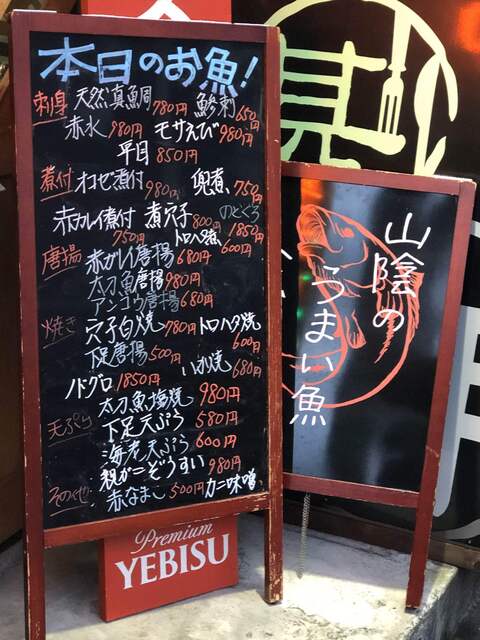 本日のお魚!
刺身 天然真鯛 780円 鯵刺 650円
赤水 980円 モサえび 980円
平目 850円
煮付 オコゼ煮付 980円 兜煮 750円
赤カレイ煮付 750円 煮穴子 800円 のどぐろ 1850円
トロハタ煮 600円
唐揚 赤ガレイ唐揚 680円
太刀魚唐揚 980円
アンコウ唐揚 680円
焼き 穴子白焼 780円 トロハタ焼 600円
下足唐揚 500円 いか焼 680円
ノドグロ 1850円
太刀魚塩焼 980円
天ぷら 下足天ぷら 580円
海老天ぷら 600円
親がにぞうすい 980円
その他 赤なまこ 500円 カニ味噌
山陰の
うまい魚
Premium
YEBISU